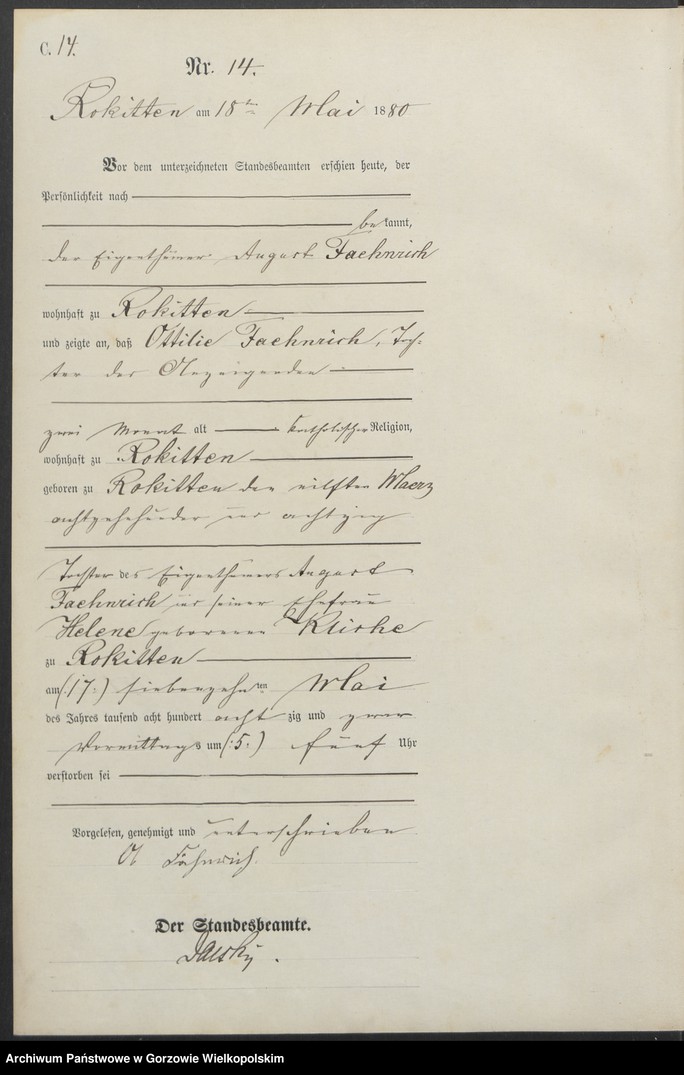 C. 14.
Nr. 14.
Rokitten am 18ten Mai 1880
Vor dem unterzeichneten Standesbeamten erschien heute, der
Persönlichkeit nach
bekannt,
der Eigenthümer August Faehnrich
wohnhaft zu Rokitten
und zeigte an, daß Ottilie Faehnrich, Toch-
ter des Anzeigenden
zwei Monat alt katholischer Religion,
wohnhaft zu Rokitten
geboren zu Rokitten den eilften Maerz
achtzehnhundert und achtzig
Tochter des Eigenthümers August
Faehnrich und seiner Ehefrau
Helene geborenen
zu Rokitten
am (:17:) siebenzehnten Mai
des Jahres tausend acht hundert achtzig und zwar
Vormittags um (:5:) fünf Uhr
verstorben sei
Vorgelesen, genehmigt und unterschrieben
Fähnrich.
Der Standesbeamte.
Archiwum Państwowe w Gorzowie Wielkopolskim